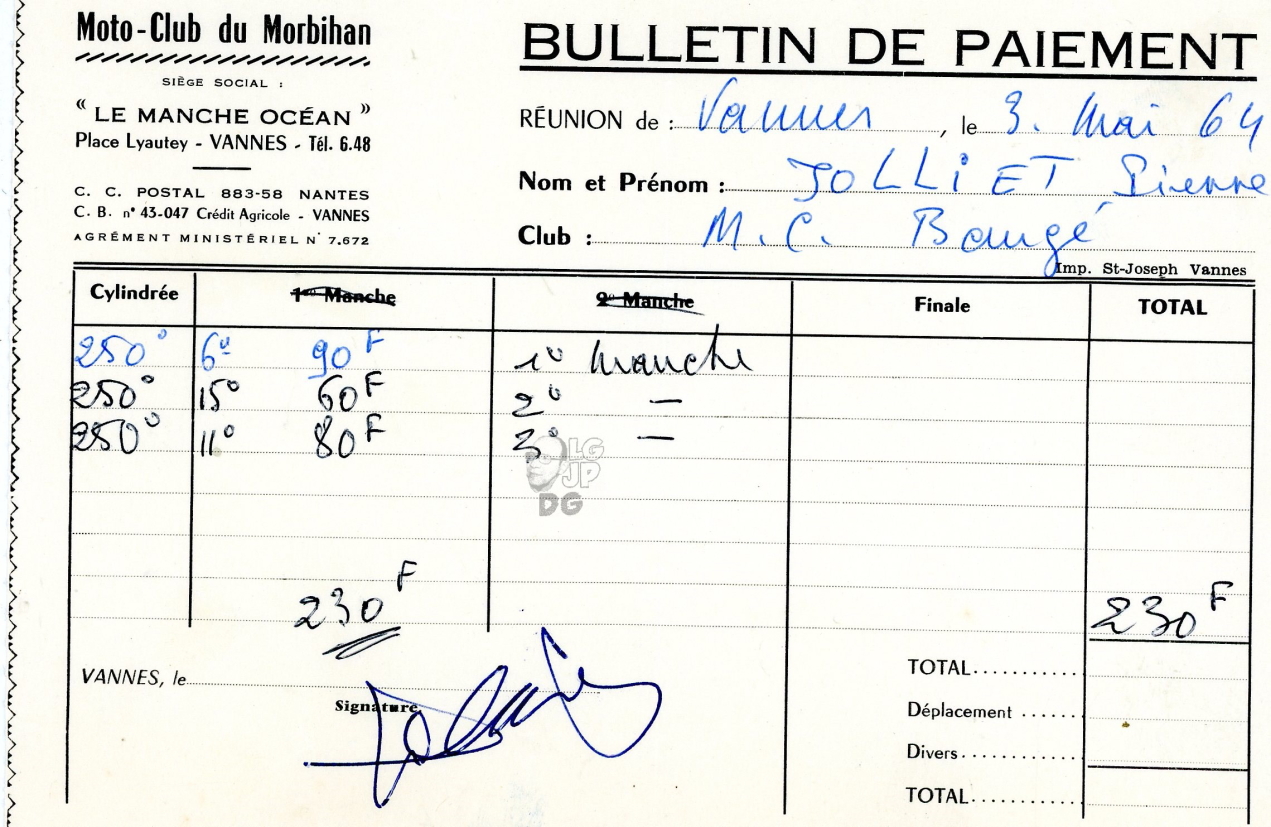 Moto-Club du Morbihan
SIÈGE SOCIAL :
" LE MANCHE OCÉAN "
Place Lyautey - VANNES - Tél. 6.48
C. C. POSTAL 883-58 NANTES
C. B. n° 43-047 Crédit Agricole - VANNES
AGRÉMENT MINISTÉRIEL N° 7.672
BULLETIN DE PAIEMENT
RÉUNION de : Vannes, le 3. Mai 64
Nom et Prénom : JOLLIET Pierre
Club : M. C. Baugé
Imp. St-Joseph Vannes
Cylindrée 1re Manche 2e Manche Finale TOTAL
250° 6° 90 F 1° manche
250° 15° 60 F 2° —
250° 11° 80 F 3° —
LG
JP
DG
230 F 230 F
VANNES, le
Signature
TOTAL...........
Déplacement ......
Divers............
TOTAL...........